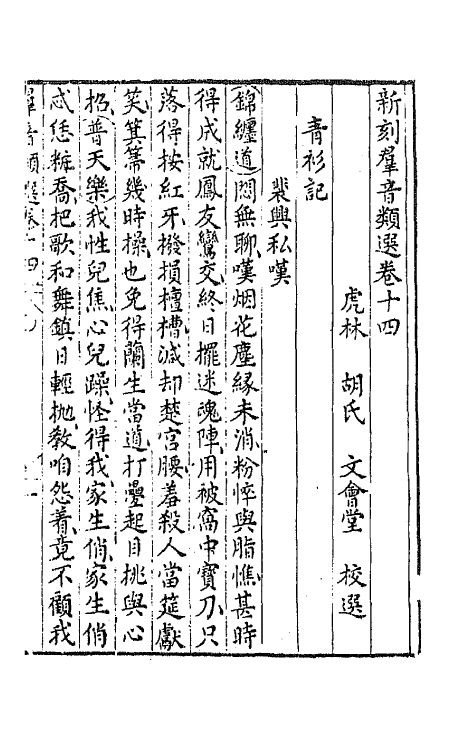 新刻羣音類選卷十四
虎林 胡氏 文會堂 校選
青衫記
裴興私嘆
錦纏道悶無聊嘆烟花塵緣未消粉悴與脂憔甚時
得成就鳳友鸞交終日擺迷魂陣用被窩中寶刀只
落得按紅牙撥損檀槽減却楚宮腰羞殺人當筵獻
笑箕箒幾時操也免得蘭生當道打疊起目挑與心
招普天樂我性兒焦心兒躁怪得我家生俏家生俏
忒恁粧喬把歌和舞鎮日輕抛教咱怨着竟不顧我
羣音類選卷十四